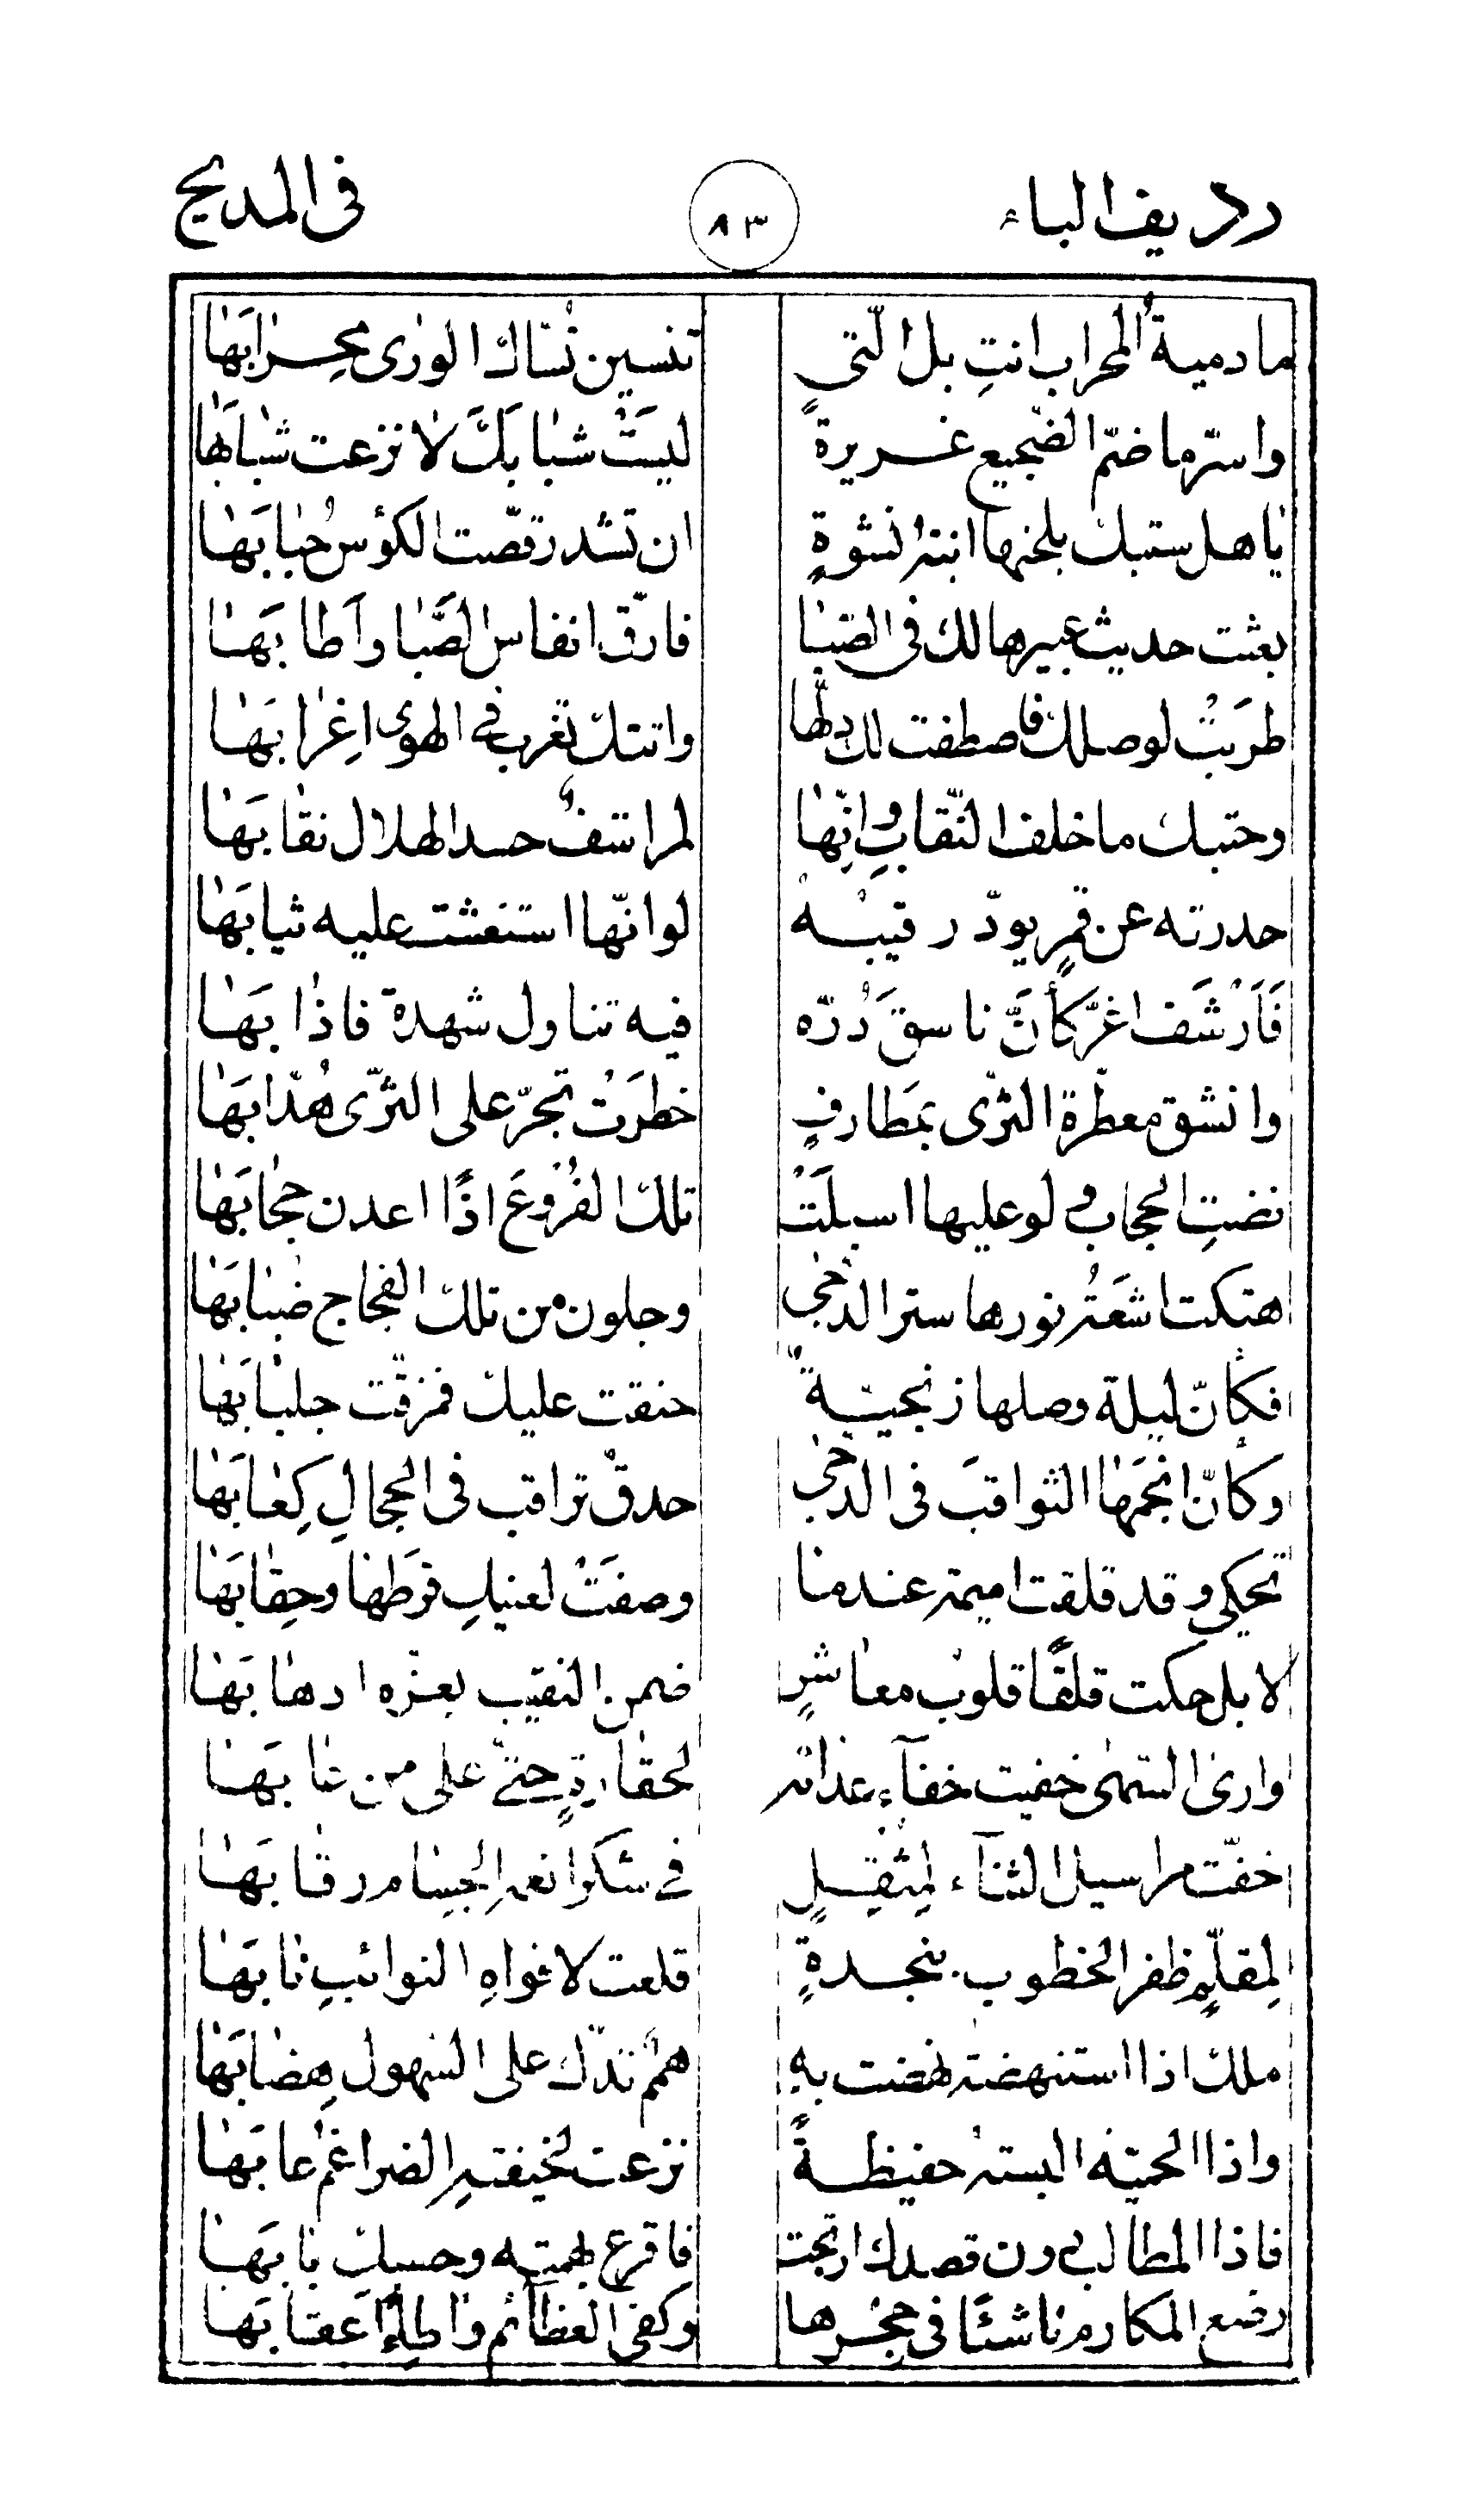 رديف الباء ٨٣ فى المديح
ما دمية المحراب انتِ بل الّتي تنسين نسّاك الورى محرابَها
واسرّ ما ضمّ الضجيع غريرةً ليسَتْ شبابَكَ لا نزعت شبابَها
يا هل ستبك بلحنها ابنة نشوةٍ ان تشد رقّصت الكؤسُ حُبابَها
بعثت حديث عبيرها لك فى الصّبا فارقّ انفاس الصَّبا وأطابَها
طربَتْ لوصلك فاصطفت لك دلّها واتتك تغرب في الهوى اغرابَها
وحبتك ما خلف النّقاب وانّها لمراشفٌ حسد الهلال نقابَها
حدرته عن قمرٍ يودّ رقيبه لو انّها استغشت عليه ثيابَها
فَارْشَف اغرّ كأنّ ناسقَ دُرّه فيه تناول شهدة فاذابَها
وانشق معطرة الثرى بمَطارفٍ خطرَتْ تجرّ على الثرّى هُدّابَها
نضتِ الحجاب ولو عليها اسبلَتْ تلك الفُروعَ اذًا اعدن حجابَها
هتكت اشعّة نورها ستر الدّجى وجلون من تلك الفجاج ضبابَها
فكأنّ ليلة وصلها زنجيّةٌ حنقت عليك فمزقّت جلبابَها
وكأنّ انجمَها الثواقبَ فى الدّجى حدقٌ تراقب فى الحجالِ كِعابَها
تحكى وقد قلقت اميمة عندما وصفَتْ لعينكِ قرطَها وحِقابَها
لا بل حكت قلقًا قلوب معاشرٍ ضمن النقيب بعزّه ارهابَها
وارى السّهى خفيت خفآء عداته لحقارةٍ حتّى على من عابَها
خفّت مراسيل الثنآء لمثقِلٍ في شكر انعمهِ الجسام رقابَها
لمقلّمٍ ظفر الخطوب بنجدةٍ قلعت لافواهِ النوائبِ نابَها
ملك اذا استنهضته نهضت به هممٌ تدكّ على السّهول هِضابَها
واذا الحميّة البسته حفيظةً نزعت لخيفتهِ الضراغمُ غابَها
فاذا المطالب دون قصدك ارتجت فاقرع بهمّته وحسبك بابَها
رضع المكارم ناشئًا فى حجرها وكفى العظآئم واطِئًا اعقابَها